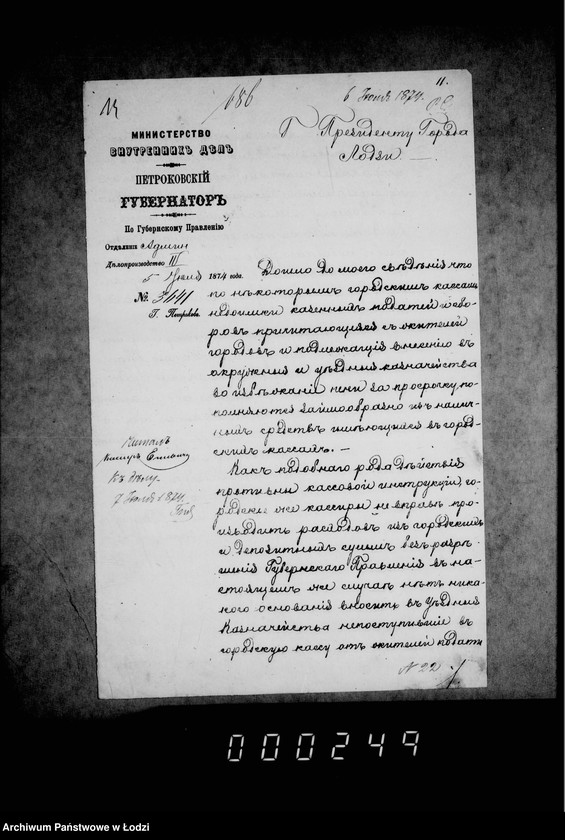 11.
686
6 Июня 1874.
Г Президенту Города
Лодзи
МИНИСТЕРСТВО
ВНУТРЕННИХЪ ДѢЛЪ
ПЕТРОКОВСКІЙ
ГУБЕРНАТОРЪ
По Губернскому Правленію
Отдѣленіе Админ
Дѣлопроизводство III
5 1874 года.
№ 3441
Г. Петроковъ.
Дошло до моего свѣдѣнія что
по нѣкоторымъ городскимъ кассамъ
недоимки казенныхъ податей и сбо-
ровъ причитающіеся съ жителей
городовъ и подлежащія внесенію въ
окружныя и уѣздныя казначейства
во избѣжаніе пени за просрочку, по-
полняются заимообразно изъ налич-
ныхъ средствъ имѣющихся въ город-
скихъ кассахъ. —
Какъ подобнаго рода дѣйствія
противны кассовой инструкціи, го-
родскіе же кассиры не вправѣ про-
изводить расходовъ изъ городскихъ
и депозитныхъ суммъ безъ разрѣ-
шенія Губернскаго Правленія въ на-
стоящемъ же случаѣ нѣтъ ника-
кого основанія вносить въ уѣздныя
Казначейства непоступившіе въ
городскую кассу отъ жителей подати
Читалъ
Къ дѣлу
7 Июня 1874
N 22
000249
Archiwum Państwowe w Łodzi